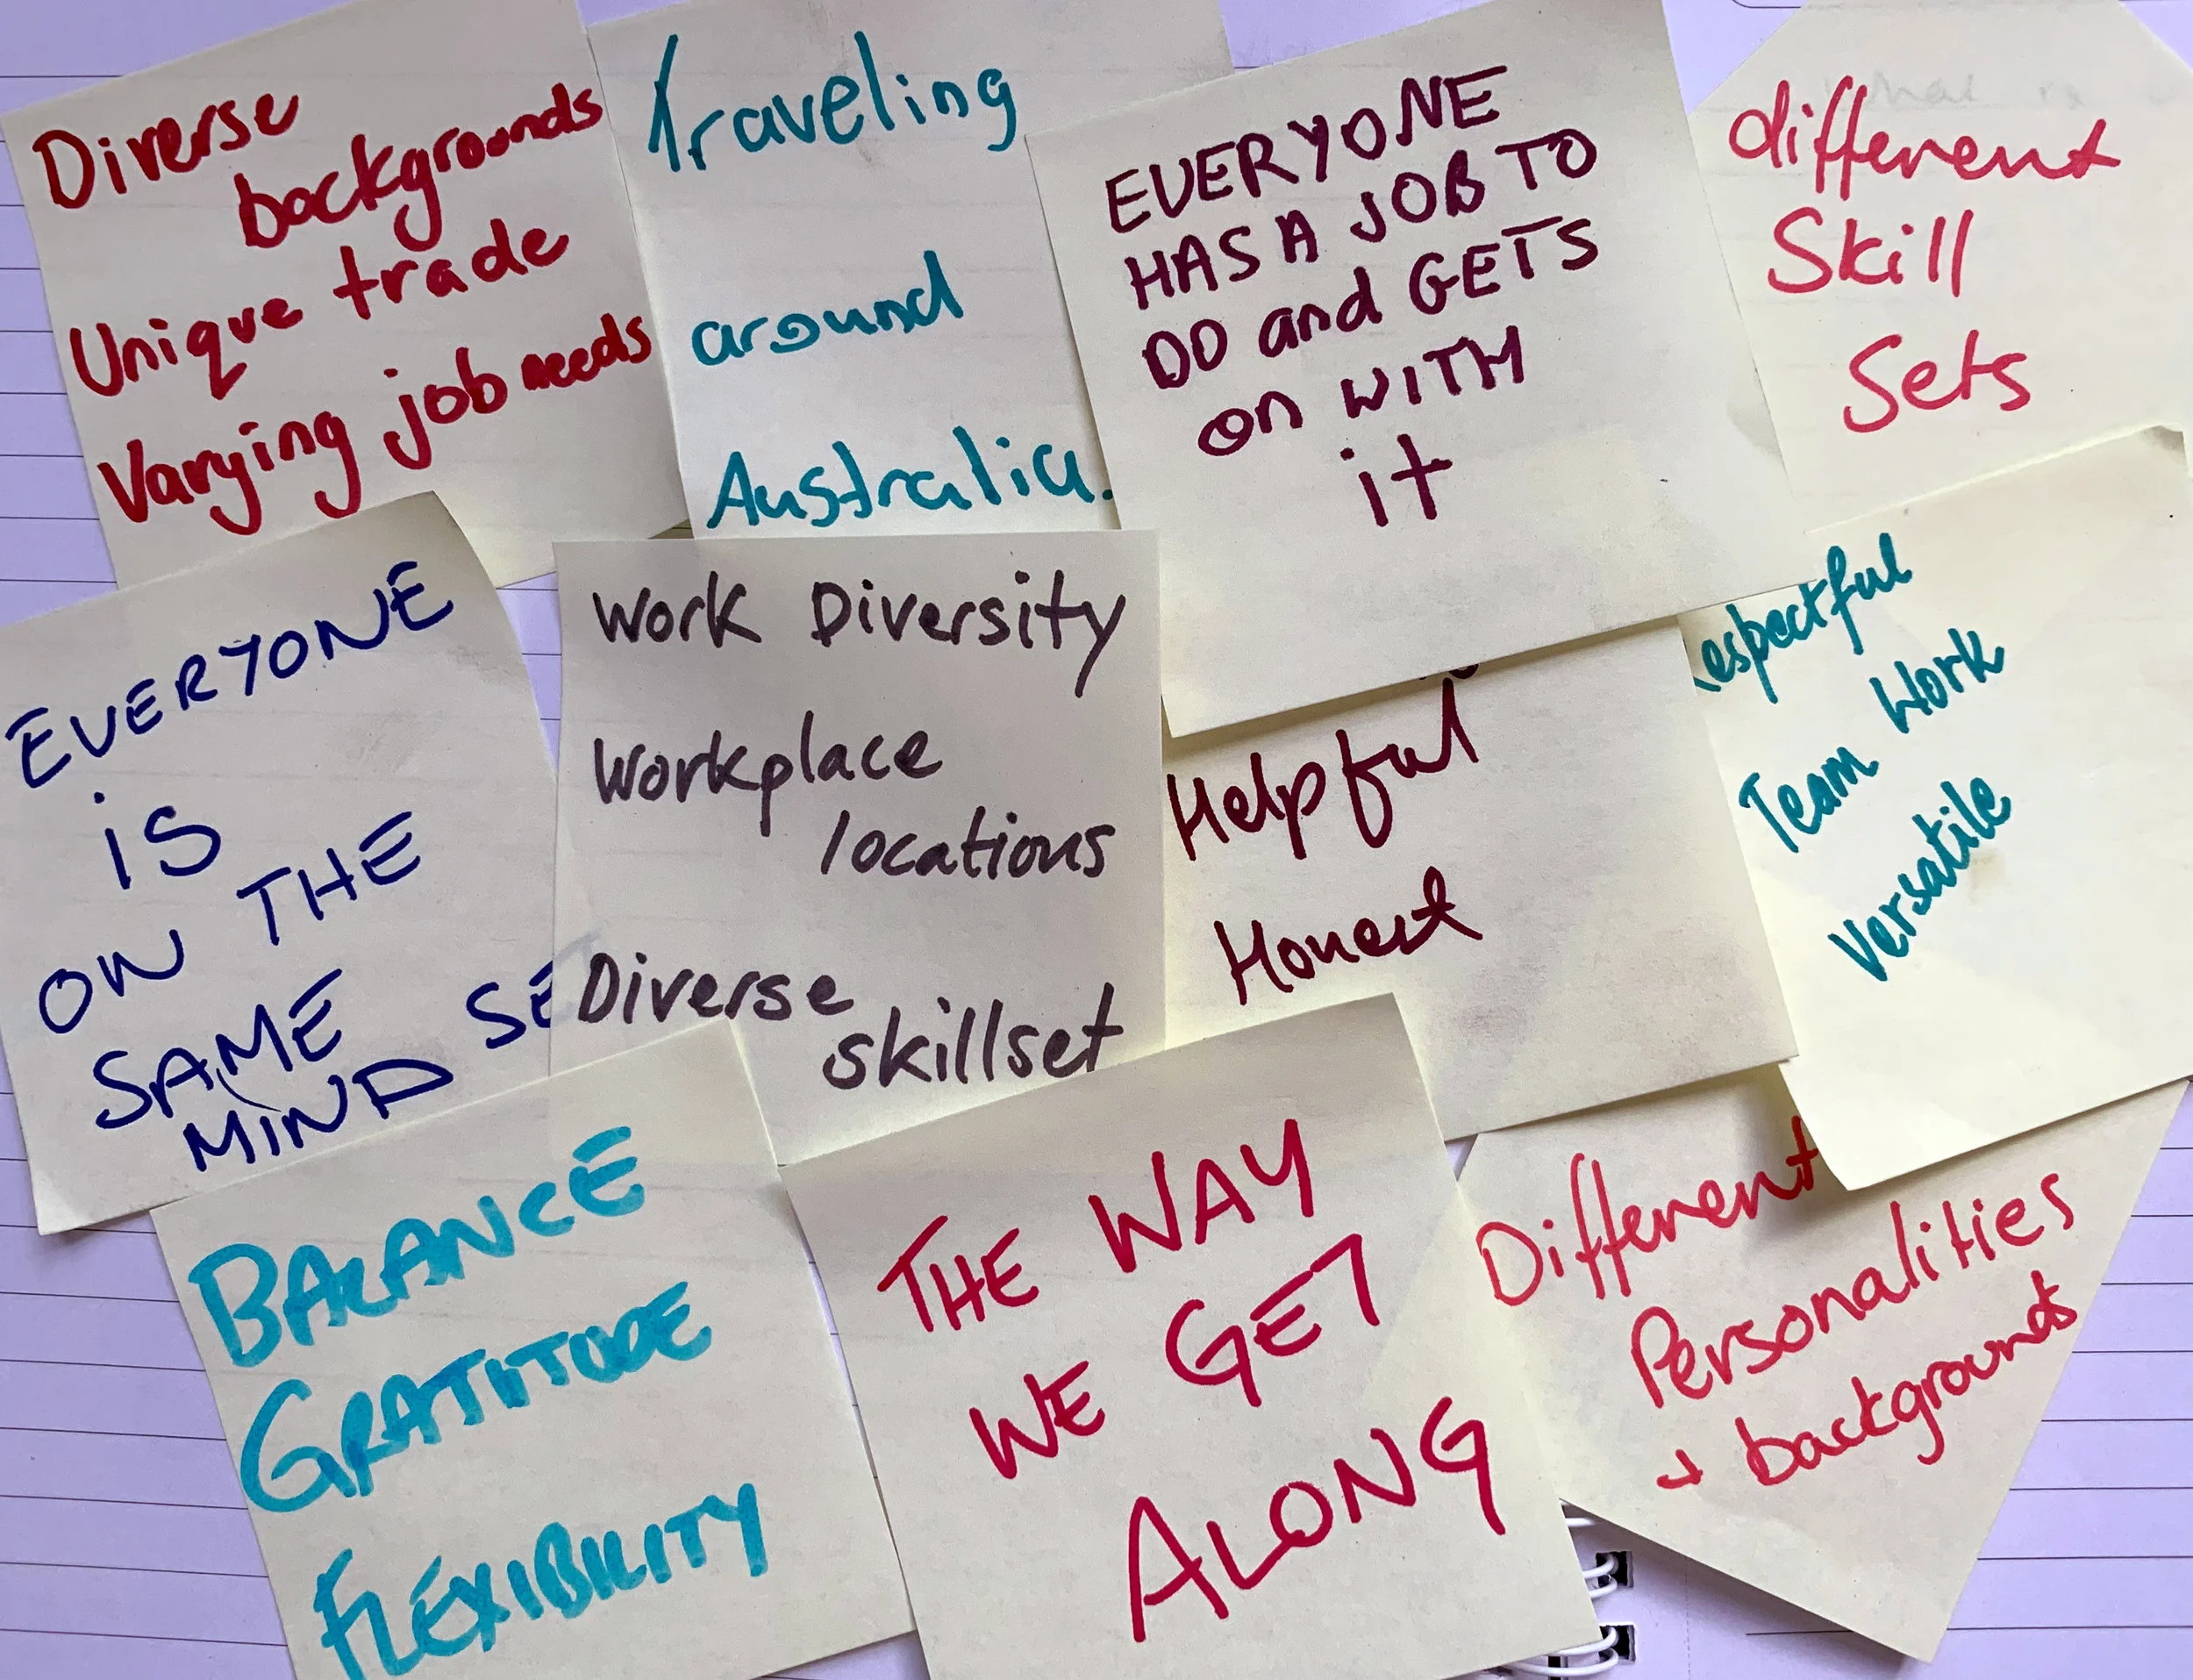 Diverse
backgrounds
Unique trade
Varying job needs
Traveling
around
Australia.
EVERYONE
HAS A JOB TO
DO and GETS
on WITH
it
different
Skill
Sets
EVERYONE
iS
ON THE
SAME
MIND SE
Work Diversity
Workplace
locations
Diverse
skillset
Helpful
Honest
espectful
Team Work
Versatile
BALANCE
GRATITUDE
FLEXIBILITY
THE WAY
WE GET
ALONG
Different
Personalities
+ backgrounds